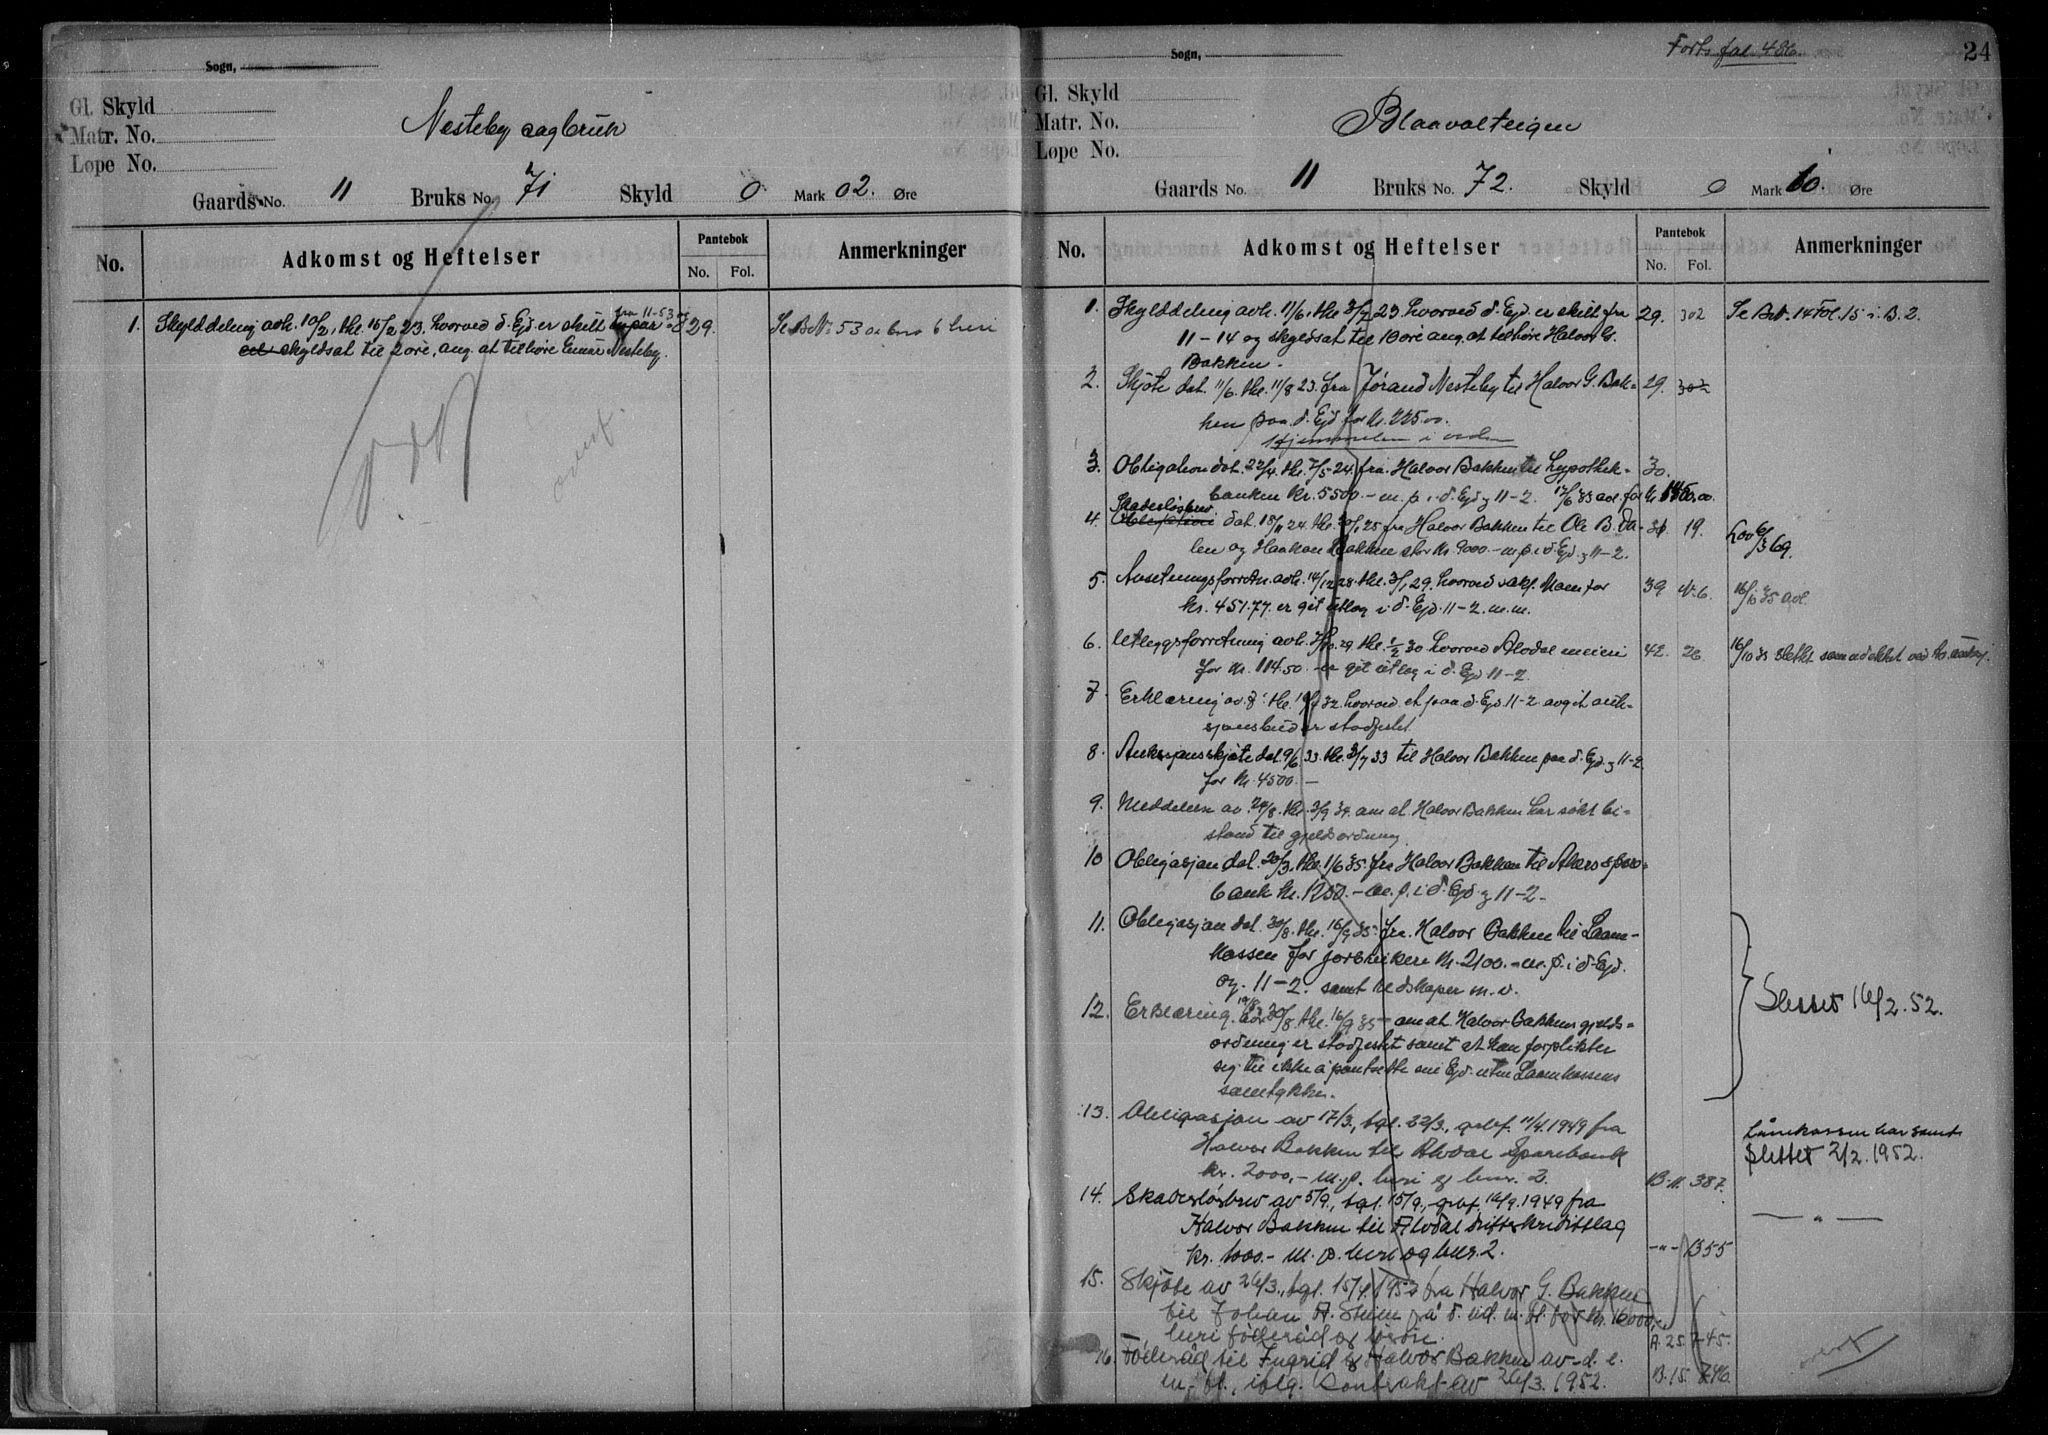 Sogn,
Gl. Skyld
Matr. No.
Løpe No.
Nesteby sagbruk
Gaards No. 11 Bruks No. 71 Skyld 0 Mark 02. Øre
No. Adkomst og Heftelser Pantebok No. Fol. Anmerkninger
fra 11-53
1. Skylddeling avh. 10/2, thl. 16/2 23. hvorved d. Ejd. er skilt 29. Se B.No 53 a
skyldsat til 2 øre, ang. at tilhøre Nesteby.
overf.
Forts. fol. 486
24
Sogn,
Gl. Skyld
Matr. No.
Løpe No.
Blaavolteigen
Gaards No. 11 Bruks No. 72. Skyld 0 Mark 10. Øre
No. Adkomst og Heftelser Pantebok No. Fol. Anmerkninger
1. Skylddeling avh. 11/6, thl. 3/7 23 hvorved d. Ejd. er skilt fra 29. 302 Se Br. 14 Fol. 15 i B. 2.
11-14 og skyldsat til 10 øre ang. at tilhøre Halvor G.
Bakken.
2. Skjøte dat. 11/6. thl. 11/8 23. fra Jørand Nesteby til Halvor G. Bak= 29. 302
ken paa d. Ejd for kr. 225.00.
Hjemmelen i orden
3. Obligation dat. 22/4. thl. 7/5 24. fra Halvor Bakken til Hypothek- 30.
banken kr. 5500.- m. p. i d. Ejd og 11-2. 17/6 33 avl. for kr 1400.00.
Skadesløsbrev
4. Obligation dat. 18/11 24. thl. 30/1 25 fra Halvor Bakken til Ole B. Da- 31. 19. 6/3 69.
len og Haakon Bakken stor kr. 9000.- m. p. i d. Ejd. og 11-2.
5. Avsetningsforretn. avh. 14/12 28. thl. 3/1 29. hvorved for 39 16/10 35 avl.
kr. 451.77. er git utlæg i d. Ejd. 11-2. m.m.
6. Utleggsforretning avh. thl. 1/2 30 hvorved Alvdal meieri 42. 26. 16/10 35 slettet som udekket ved
for kr. 114.50. er git utlæg i d. Ejd 11-2.
7. Erklæring av thl. 32. hvorved et paa d. Ejd. 11-2 avgit auk-
sjonsbud er stadfestet
8. Auksjonsskjøte dat. 9/6 33. thl. 3/7 33 til Halvor Bakken paa d. Ejd. og 11-2
for kr. 4500.-
9. Meddelelse av 24/8. thl. 3/9 34. om at Halvor Bakken har søkt bi-
stand til gjeldsordning
10 Obligasjon dat. 20/3. thl. 1/6 35 fra Halvor Bakken til Akers spare-
bank kr. 1250.- m. p. i d. Ejd. og 11-2.
11. Obligasjon dat. 30/8. thl. 16/9 35. fra Halvor Bakken til Laane-
kassen for jordbrukere kr. 2100.- m. p. i d. Ejd.
og 11-2. samt redskaper m. v.
12. Erklæring 30/8. thl. 16/9 35 om at Halvor Bakkens gjelds=
ordning er stadfestet samt at han forplikter
seg til ikke å pantsette sin Ejd. uten Laanekassens
samtykke.
Slettet 16/2. 52.
13. Obligasjon av 17/3., tgl. 22/3., grbf. 11/4. 1949 fra
Halvor Bakken til Alvdal Sparebank
kr. 2000,- m. p. heri og bnr. 2. B. 11. 387.
Lånekassen har samt.
Slettet 2/2. 1952.
14. Skadesløsbrev av 5/9., tgl. 15/9., grbf. 16/9. 1949 fra
Halvor Bakken til Alvdal driftskredittlag
kr. 1000.- m. p. heri og bnr. 2. -"- 1355
— " —
15. Skjøte av 26/3., tgl. 15/4. 1952 fra Halvor G. Bakken
til Johan A. Steim på d. eid. m. fl. for kr. 16000,-
heri føderåd og løsøre. A. 25. 745.
16. Føderåd til Ingrid og Halvor Bakken av d. e.
m. fl., iflg. kontrakt av 26/3. 1952. B. 15. 746.
overf.